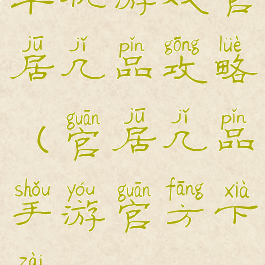 jū jǐ pǐn gōng lüè
居几品攻略
guān jū jǐ pǐn
（官居几品
shǒu yóu guān fāng xià
手游官方下
zài